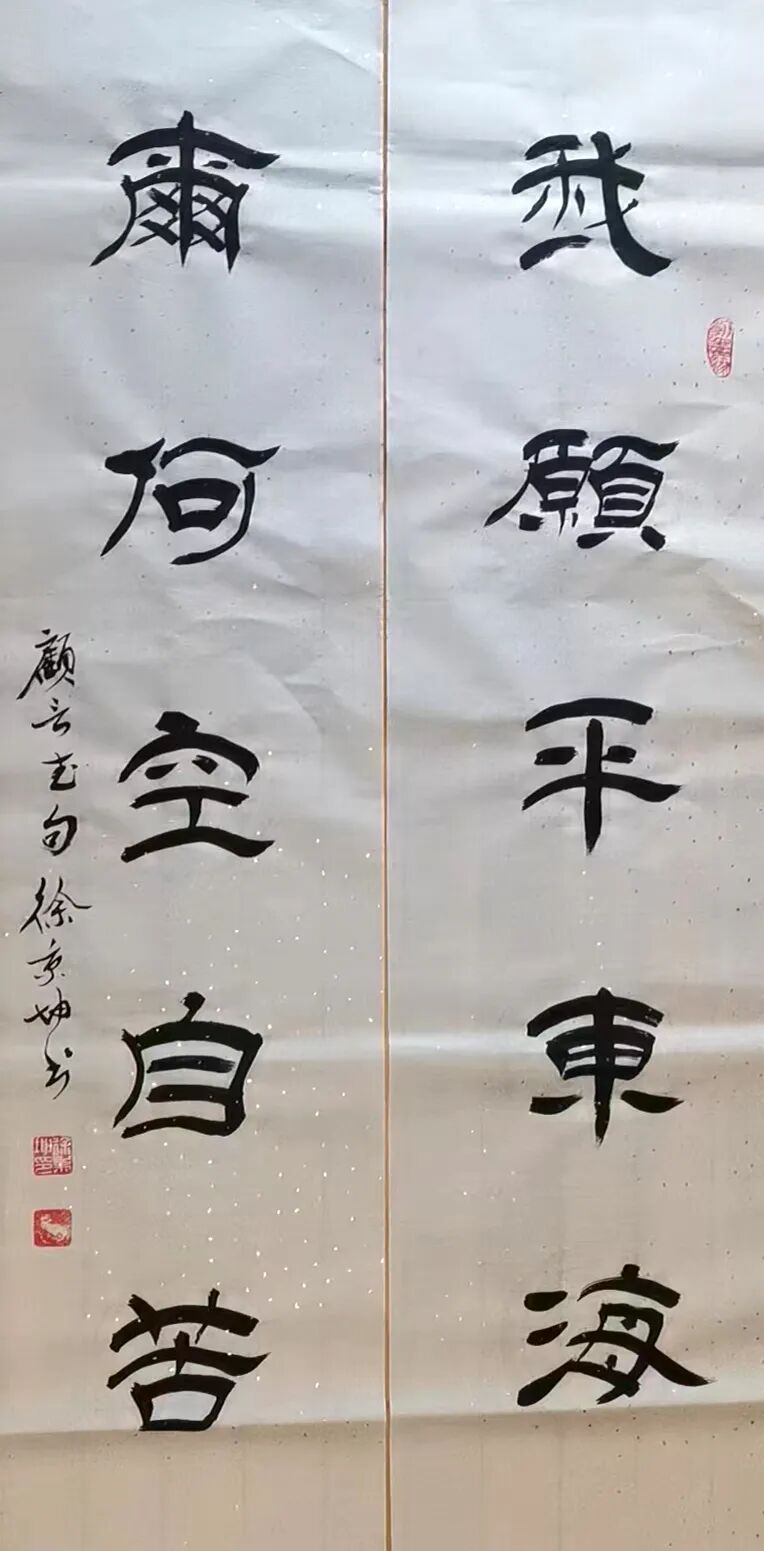 我願平東海
爾何空自苦
顧炎武句徐京坤书